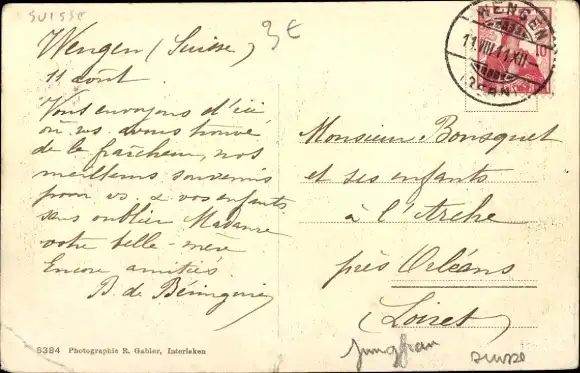 SUISSE
3 €
Wengen (Suisse)
11 août.
Vous envoyons d'ici
où ns avons trouvé
de la fraîcheur, nos
meilleurs souvenirs
pour vs & vos enfants
sans oublier Madame
votre belle-mère
Encore amitiés
B. de
WENGEN
11.VIII.11.XII
(BERN)
10
Monsieur Bousquet
et ses enfants
à l'Arche
près Orléans
(Loiret)
6384 Photographie R. Gabler, Interlaken
Jungfrau
suisse